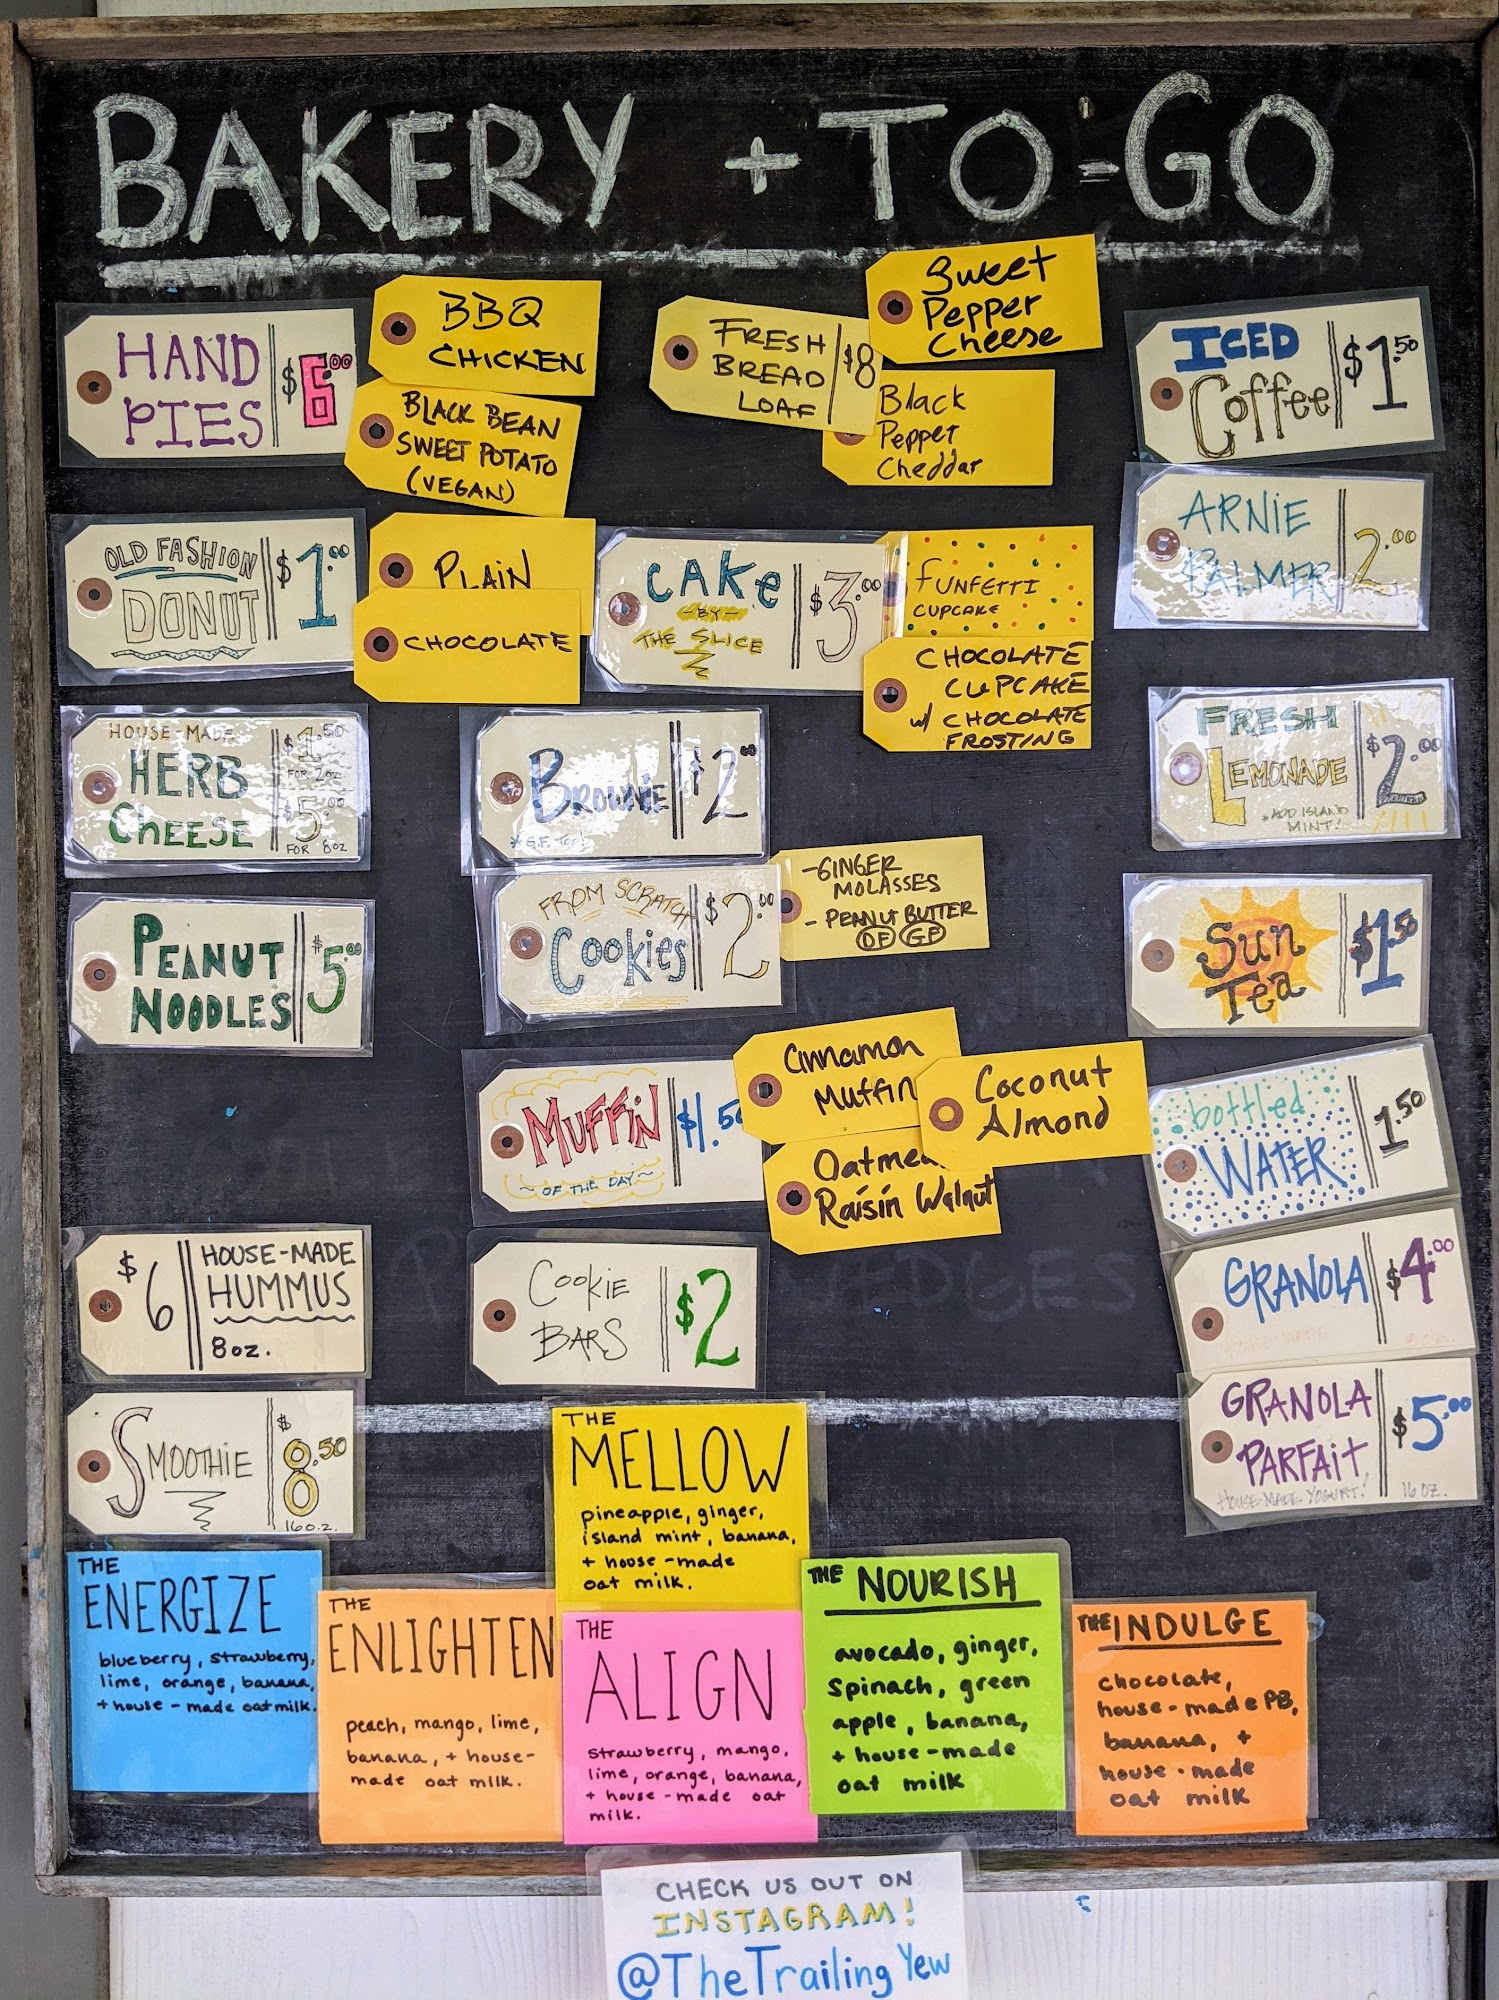 BAKERY + TO-GO
HAND
PIES
$6.00
BBQ
CHICKEN
BLACK BEAN
SWEET POTATO
(VEGAN)
FRESH
BREAD
LOAF
$8
Sweet
Pepper
Cheese
Black
Pepper
Cheddar
ICED
Coffee
$1.50
ARNIE
PALMER
2.00
OLD FASHION
DONUT
$1.00
PLAIN
CHOCOLATE
CAKE
-BY-
THE SLICE
$3.00
FUNFETTI
CUPCAKE
CHOCOLATE
CUPCAKE
w/ CHOCOLATE
FROSTING
HOUSE-MADE
HERB
CHEESE
$1.50
FOR 2oz
$5.00
FOR 8oz
BROWNIE
*G.F. TOO!
$2.00
FRESH
LEMONADE
*ADD ISLAND
MINT!
$2.00
PEANUT
NOODLES
$5.00
FROM SCRATCH
COOKIES
$2.00
-GINGER
MOLASSES
- PEANUT BUTTER
DF GF
Sun
Tea
$1.50
MUFFIN
~ OF THE DAY ~
$1.50
Cinnamon
Muffin
Oatmea
Raisin Walnut
Coconut
Almond
bottled
WATER
1.50
$6
HOUSE-MADE
HUMMUS
8oz.
COOKIE
BARS
$2
GRANOLA
$4.00
SMOOTHIE
$8.50
16oz.
GRANOLA
PARFAIT
HOUSE-MADE YOGURT!
$5.00
16 OZ.
THE
MELLOW
pineapple, ginger,
island mint, banana,
+ house-made
oat milk.
THE
ENERGIZE
blueberry, strawberry,
lime, orange, banana,
+ house-made oat milk.
THE
ENLIGHTEN
peach, mango, lime,
banana, + house-
made oat milk.
THE
ALIGN
strawberry, mango,
lime, orange, banana,
+ house-made oat
milk.
THE NOURISH
avocado, ginger,
spinach, green
apple, banana,
+ house-made
oat milk
THE INDULGE
chocolate,
house-made PB,
banana, +
house-made
oat milk
CHECK US OUT ON
INSTAGRAM!
@TheTrailing Yew